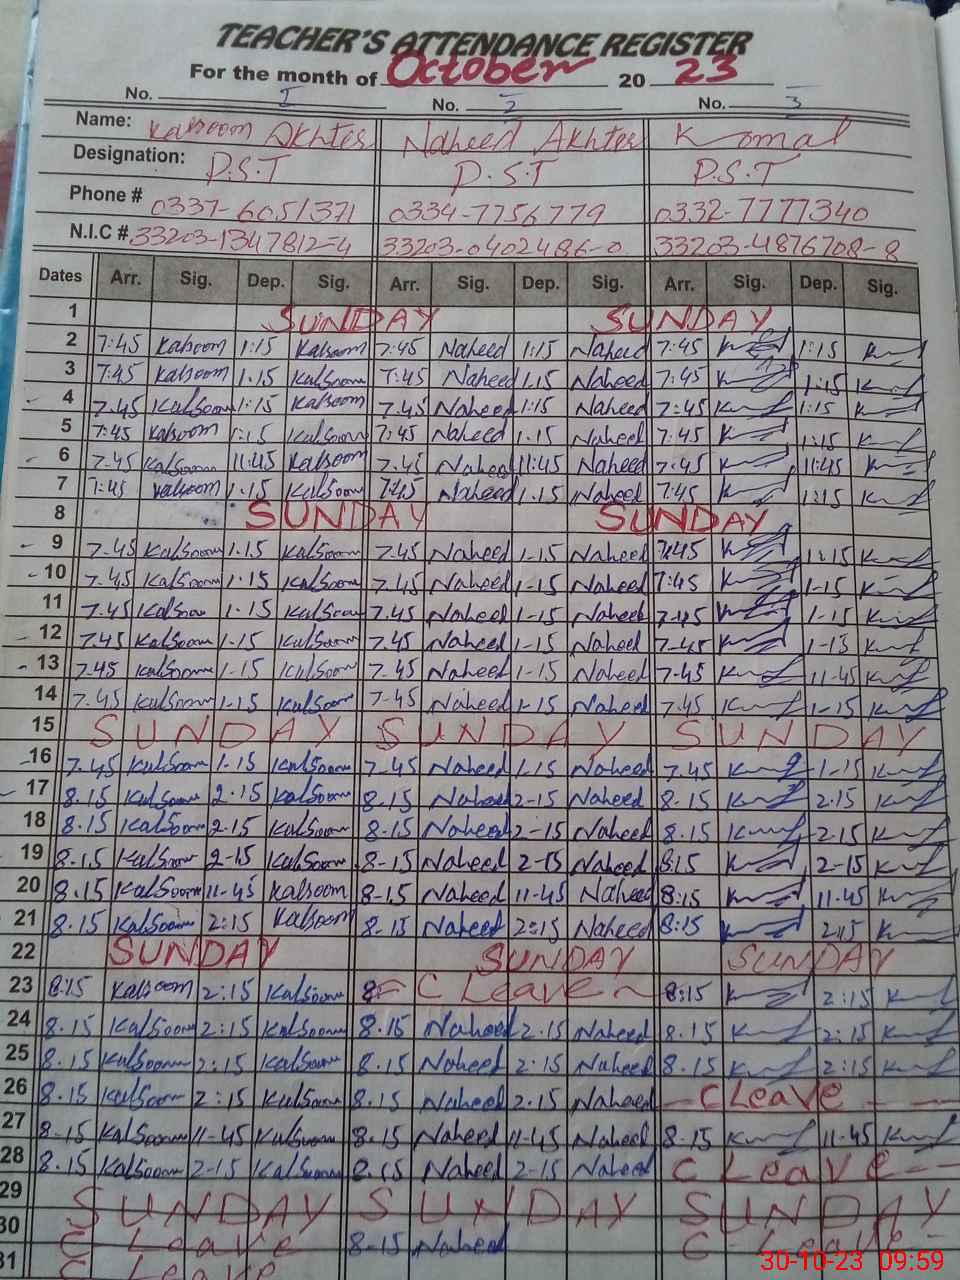 TEACHER'S ATTENDANCE REGISTER
For the month of October 20 23
No. 1 No. 2 No. 3
Name: Kalsoom Akhter Naheed Akhter Komal
Designation: P.S.T P.S.T P.S.T
Phone # 0337-6051371 0334-7756779 0332-7777340
N.I.C # 33203-1347812-4 33203-0402486-0 33203-4876708-8
Dates Arr. Sig. Dep. Sig. Arr. Sig. Dep. Sig. Arr. Sig. Dep. Sig.
1 SUNDAY SUNDAY
2 7:45 Kalsoom 1:15 Kalsoom 7.45 Naheed 1:15 Naheed 7:45 1:15
3 7:45 Kalsoom 1.15 Kalsoom 7:45 Naheed 1.15 Naheed 7:45 1:15
4 7.45 Kalsoom 1:15 Kalsoom 7.45 Naheed 1:15 Naheed 7:45 1:15
5 7:45 Kalsoom 1:15 Kalsoom 7:45 Naheed 1.15 Naheed 7:45 1:15
6 7.45 Kalsoom 11:45 Kalsoom 7.45 Naheed 11:45 Naheed 7:45 11:45
7 7:45 Kalsoom 1.15 Kalsoom 7:45 Naheed 1.15 Naheed 7:45 1:15
8 SUNDAY SUNDAY
9 7.45 Kalsoom 1.15 Kalsoom 7.45 Naheed 1-15 Naheed 7:45 1:15
10 7.45 Kalsoom 1.15 Kalsoom 7.45 Naheed 1-15 Naheed 7:45 1-15
11 7.45 Kalsoom 1.15 Kalsoom 7.45 Naheed 1-15 Naheed 7.45 1-15
12 7.45 Kalsoom 1-15 Kalsoom 7.45 Naheed 1-15 Naheed 7.45 1-15
13 7.45 Kalsoom 1-15 Kalsoom 7.45 Naheed 1-15 Naheed 7.45 11-45
14 7.45 Kalsoom 1.15 Kalsoom 7-45 Naheed 1-15 Naheed 7.45 1-15
15 SUNDAY SUNDAY SUNDAY
16 7.45 Kalsoom 1.15 Kalsoom 7-45 Naheed 1.15 Naheed 7.45 1-15
17 8.15 Kalsoom 2.15 Kalsoom 8-15 Naheed 2-15 Naheed 8-15 2.15
18 8.15 Kalsoom 2.15 Kalsoom 8-15 Naheed 2-15 Naheed 8.15 2.15
19 8.15 Kalsoom 2-15 Kalsoom 8-15 Naheed 2-15 Naheed 8:15 2-15
20 8.15 Kalsoom 11-45 Kalsoom 8-15 Naheed 11-45 Naheed 8:15 11.45
21 8.15 Kalsoom 2:15 Kalsoom 8.15 Naheed 2:15 Naheed 8:15 2:15
22 SUNDAY SUNDAY SUNDAY
23 8:15 Kalsoom 2:15 Kalsoom C Leave 8:15 2:15
24 8.15 Kalsoom 2:15 Kalsoom 8.15 Naheed 2.15 Naheed 8.15 2:15
25 8.15 Kalsoom 2:15 Kalsoom 8.15 Naheed 2:15 Naheed 8.15 2:15
26 8.15 Kalsoom 2:15 Kalsoom 8.15 Naheed 2.15 Naheed C Leave
27 8.15 Kalsoom 11-45 Kalsoom 8-15 Naheed 11-45 Naheed 8-15 11.45
28 8.15 Kalsoom 2-15 Kalsoom 8.15 Naheed 2-15 Naheed C Leave
29 SUNDAY SUNDAY SUNDAY
30 C Leave 8-15 Naheed C-Leave
31 C Leave
30-10-23 09:59